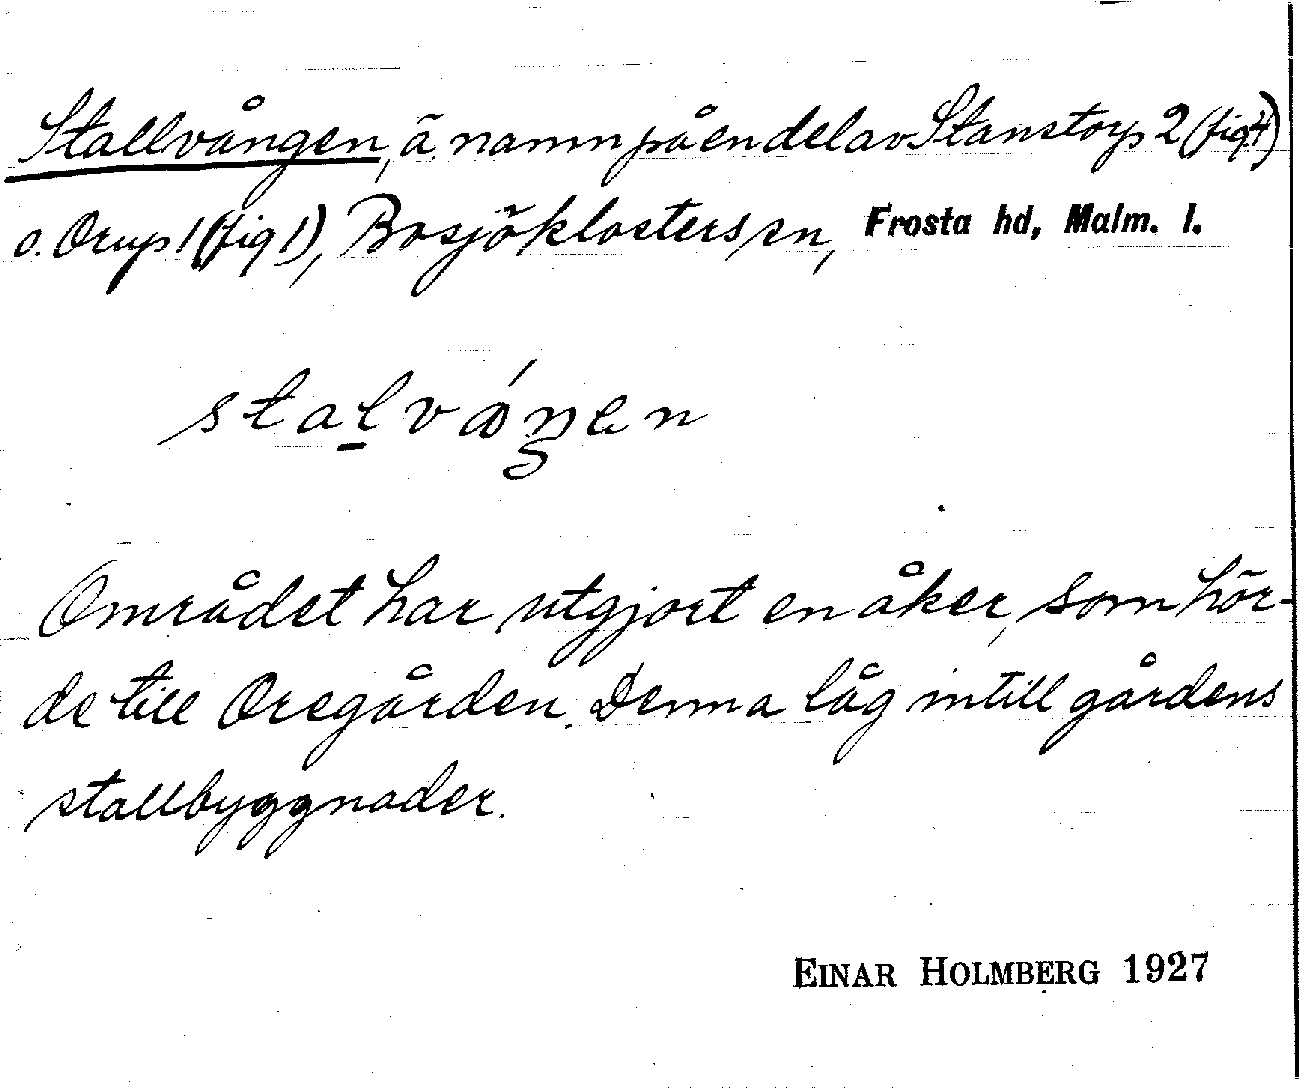 Stallvången, ä. namn på en del av Stanstorp 2 (fig 4)
o. Orup 1 (fig 1), Bosjöklosters sn, Frosta hd, Malm. l.
stalvåŋen
Området har utgjort en åker, som hör-
de till Oregården. Denna låg intill gårdens
stallbyggnader.
EINAR HOLMBERG 1927